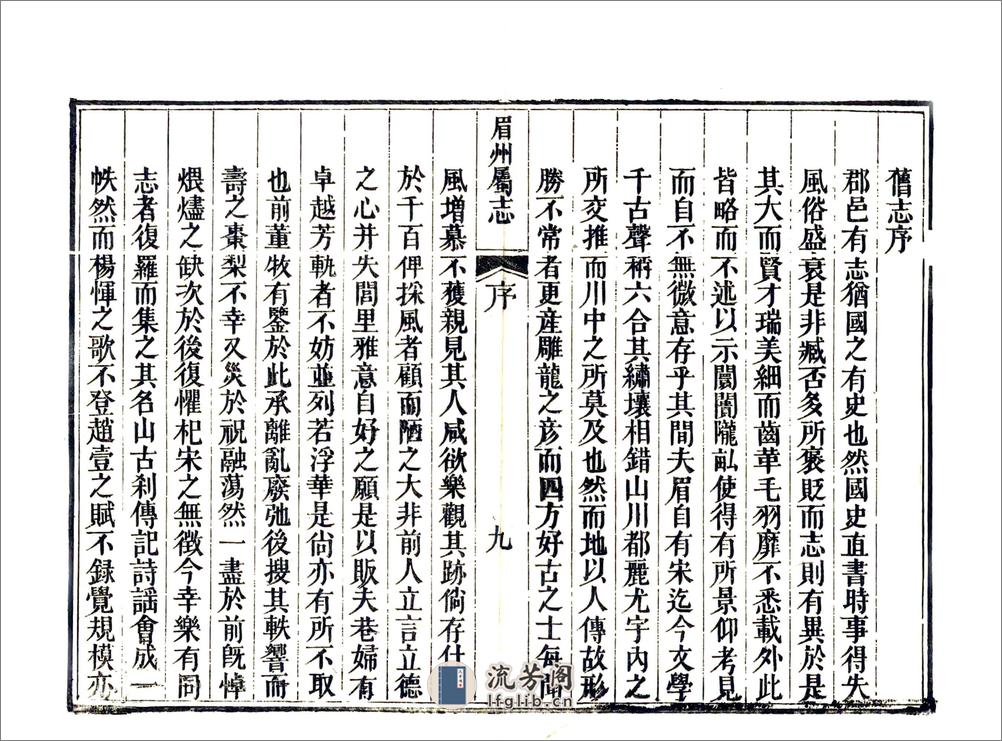 舊志序
郡邑有志猶國之有史也然國史直書時事得失
風俗盛衰是非臧否多所褒貶而志則有異於是
其大而賢才瑞美細而齒革毛羽靡不悉載外此
皆略而不述以示閭閻隴畝使得有所景仰考見
而自不無微意存乎其間夫眉自有宋迄今文學
千古聲稱六合其繡壤相錯山川都麗尤宇內之
所交推而川中之所莫及也然而地以人傳故形
勝不常者更產雕龍之彥而四方好古之士每聞
眉州屬志
序
九
風增慕不獲親見其人咸欲樂觀其跡倘存什一
於千百俾採風者顧而陋之大非前人立言立德
之心并失閭里雅意自好之願是以販夫巷婦有
卓越芳軌者不妨並列若浮華是尙亦有所不取
也前董牧有鑒於此承離亂廢弛後搜其軼響而
壽之棗梨不幸又災於祝融蕩然一盡於前旣悼
煨燼之缺次於後復懼杞宋之無徵今幸樂有同
志者復羅而集之其名山古刹傳記詩謡會成一
帙然而楊惲之歌不登趙壹之賦不錄覺規模亦
流芳阁
lfglib.cn